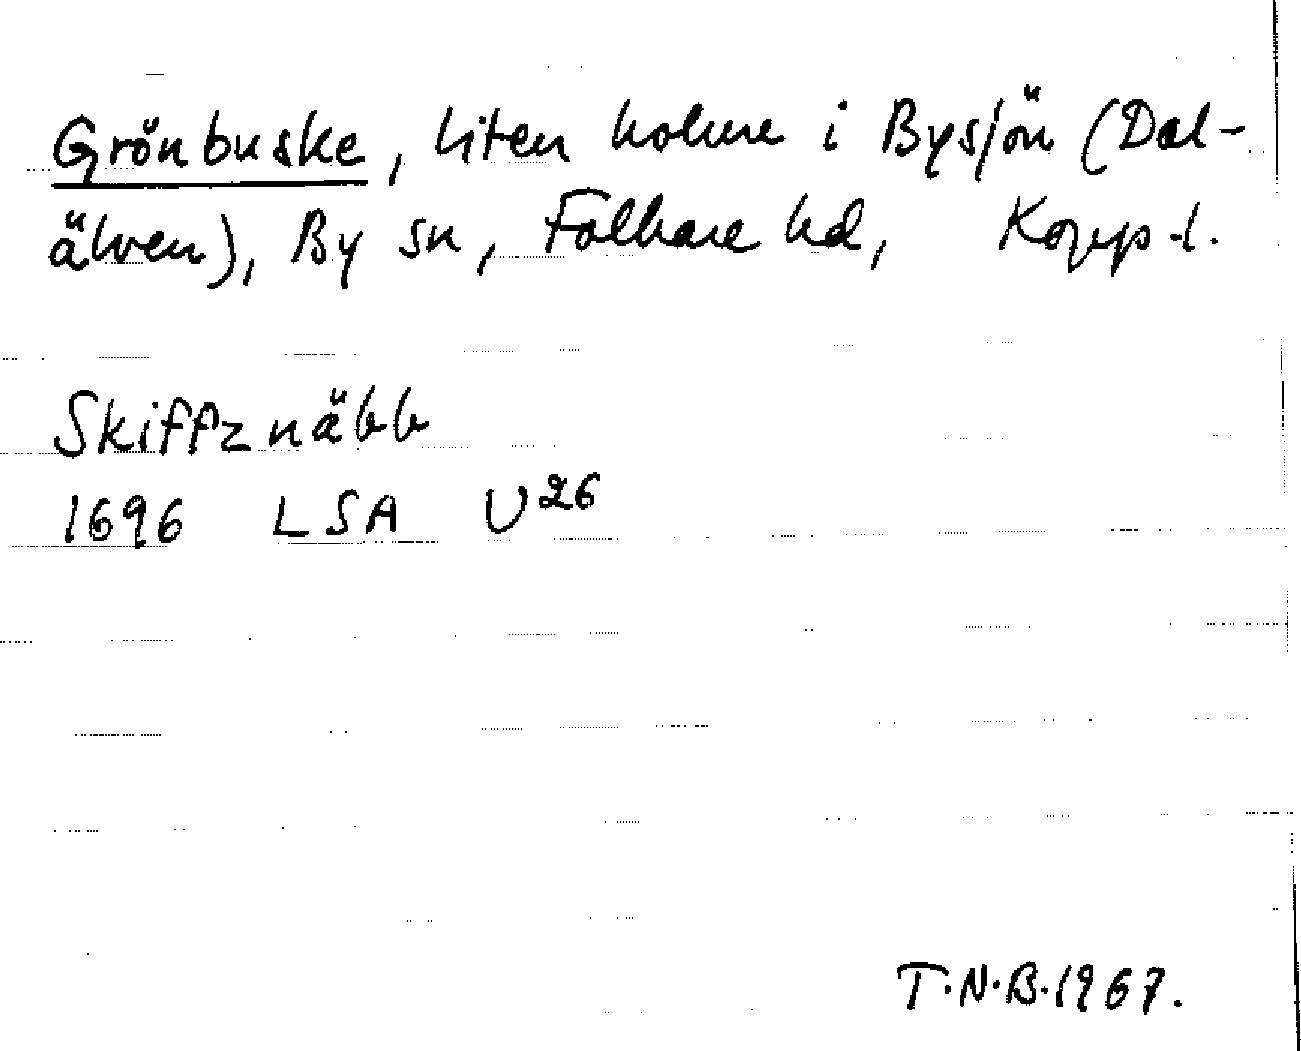 Grönbuske, liten holme i Bysjön (Dal-
älven), By sn, Folkare hd, Kopp.l.
Skiffznäbb
1696 LSA U26
T.N.B.1967.